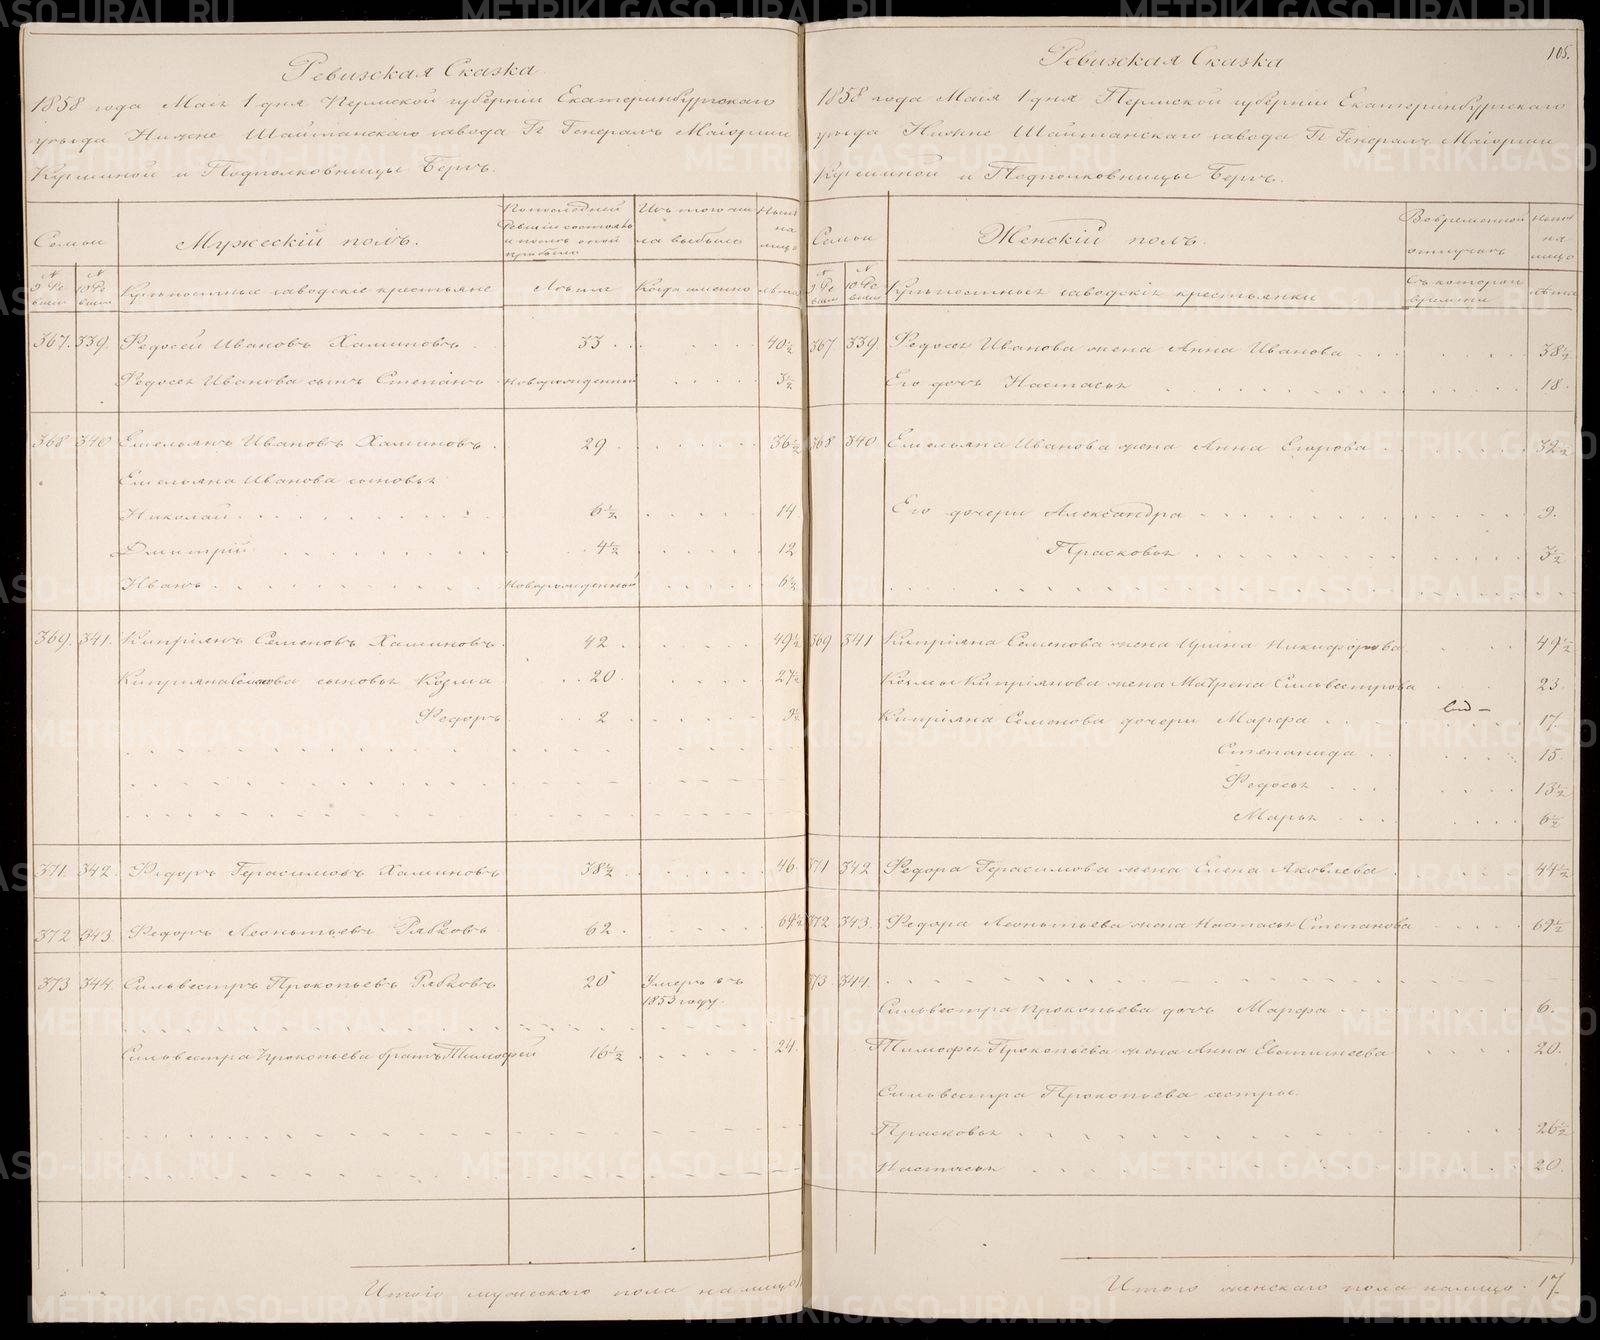 Ревизская Сказка
1858 года Маія 1 дня Пермской губерніи Екатеринбургскаго
уѣзда Нижне Шайтанскаго завода Гг Генералъ Маіорши
Кузминой и Подполковницы Бергъ.
Семьи
Мужескій полъ.
По последней Ревизіи состояло и послѣ оной прибыло
Изъ того числа выбыло
Нынѣ на лицо
№ 9 Ре визіи
№ 10 Ре визіи
Крѣпостные заводскіе крестьяне
Лѣта
Когда именно
лѣта
367. 339. Федосей Ивановъ Халминовъ 33 40½
Федосея Иванова сынъ Степанъ Новорожденный 3½
368 340 Емельянъ Ивановъ Халминовъ 29 36½
Емельяна Иванова сыновья
Николай 6½ 14
Дмитрій 4½ 12
Иванъ Новорожденной 6½
369. 341. Кипріянъ Семеновъ Халминовъ 42 49½
Кипріяна Семенова сыновья Козма 20 27½
Федоръ 2 9½
371. 342. Федоръ Герасимовъ Халминовъ 38½ 46
372 343 Федоръ Леонтьевъ Рябковъ 62 69½
373 344 Сильвестръ Прокопьевъ Рябковъ 20 Умеръ въ
1853 году
Сильвестра Прокопьева братъ Тимофей 16½ 24
Итого мужескаго пола на лицо
105.
Ревизская Сказка
1858 года Маія 1 дня Пермской губерніи Екатеринбургскаго
уѣзда Нижне Шайтанскаго завода Гг Генералъ Маіорши
Кузминой и Подполковницы Бергъ.
Семьи
Женскій полъ.
Во временной отлучкѣ
Нынѣ на лицо
№ 9 Ре визіи
№ 10 Ре визіи
Крѣпостныя заводскія крестьянки
Съ котораго времени
лѣта
367 339. Федосея Иванова жена Анна Иванова 38½
Его дочь Настасья 18.
368 340. Емельяна Иванова жена Анна Егорова 32½
Его дочери Александра 9.
Прасковья 3½
369 341 Кипріяна Семенова жена Ирина Никифорова 49½
Козмы Кипріянова жена Матрена Сильвестрова 23
Кипріяна Семенова дочери Марфа 17
Степанида 15
Федосья 13½
Марья 6½
371 342 Федора Герасимова жена Елена Яковлева 44½
372 343. Федора Леонтьева жена Настасья Степанова 69½
373. 344.
Сильвестра Прокопьева дочь Марфа 6.
Тимофея Прокопьева жена Анна Евстигнеева 20.
Сильвестра Прокопьева сестры
Прасковья 26½
Настасья 20.
Итого женскаго пола налицо 17
METRIKI.GASO-URAL.RU